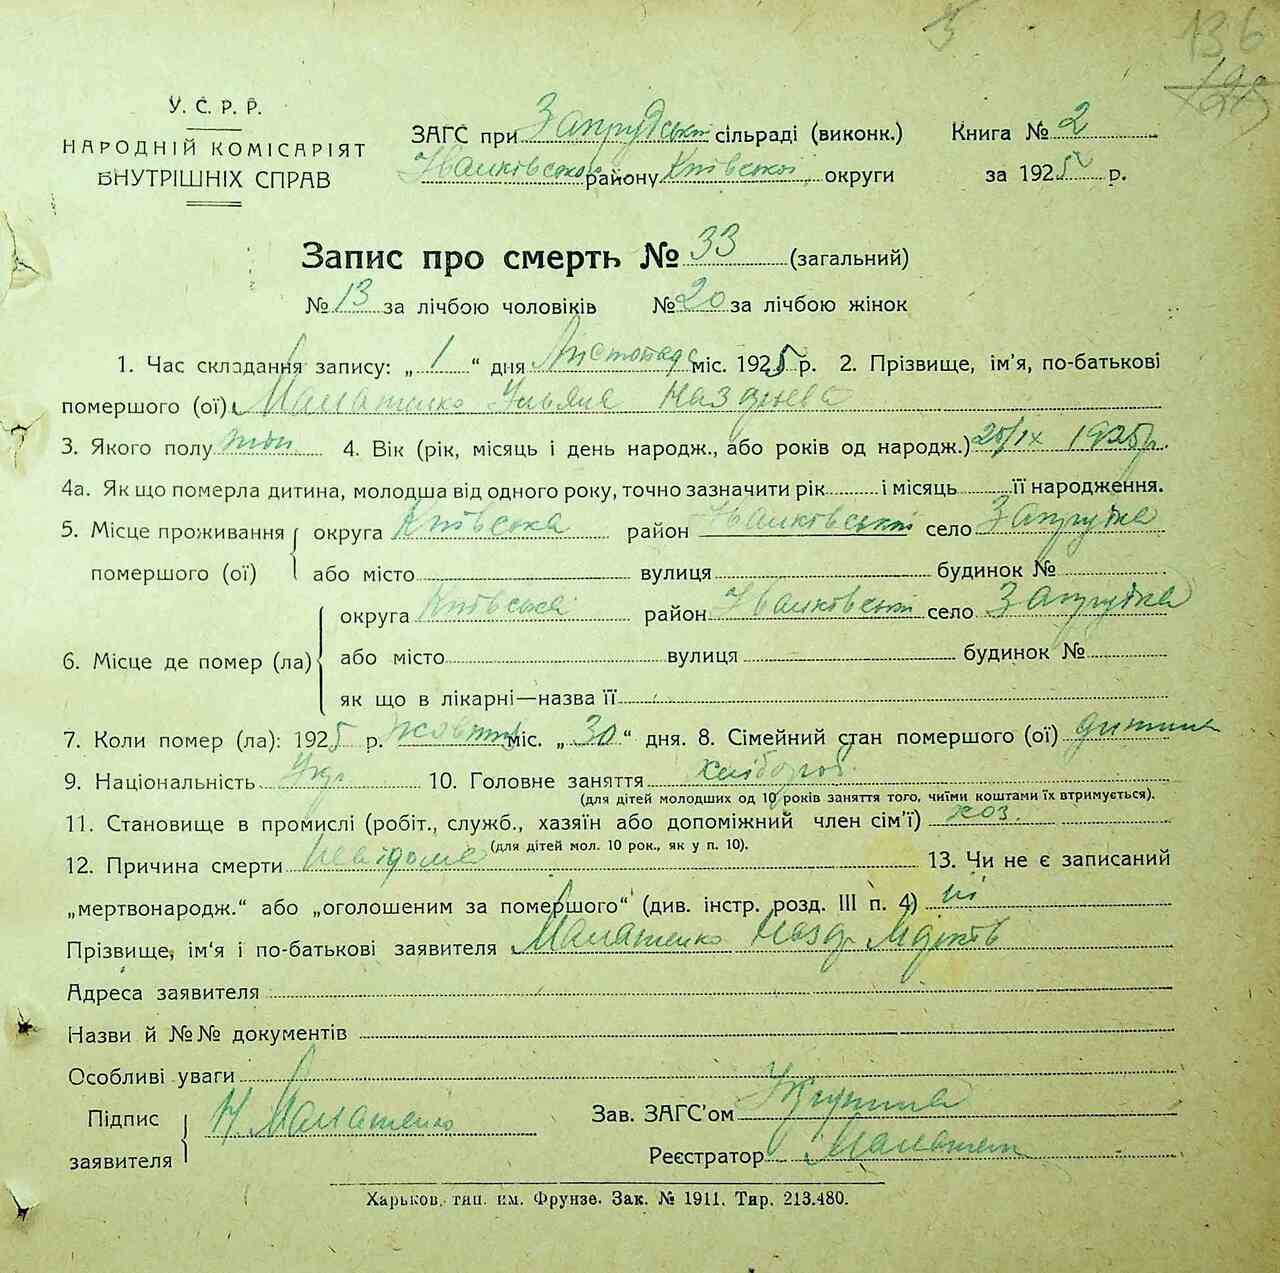 136
У. С. Р. Р.
НАРОДНІЙ КОМІСАРІЯТ
ВНУТРІШНІХ СПРАВ
ЗАГС при Запрудській сільраді (виконк.) Книга № 2
Іванковського району Київської округи за 1925 р.
Запис про смерть № 33 (загальний)
№ 13 за лічбою чоловіків № 20 за лічбою жінок
1. Час складання запису: „ 1 “ дня Листопада міс. 1925 р. 2. Прізвище, ім’я, по-батькові
помершого (ої) Маматенко Уляна
3. Якого полу жін. 4. Вік (рік, місяць і день народж., або років од народж.) 25/IX 1925 р.
4а. Як що померла дитина, молодша від одного року, точно зазначити рік і місяць її народження.
5. Місце проживання округа Київська район Іванковський село Запрудка
помершого (ої) або місто вулиця будинок №
округа Київська район Іванковський село Запрудка
6. Місце де помер (ла) або місто вулиця будинок №
як що в лікарні—назва її
7. Коли помер (ла): 1925 р. Жовтня міс. „ 30 “ дня. 8. Сімейний стан помершого (ої) дитина
9. Національність Укр. 10. Головне заняття хлібороб.
(для дітей молодших од 10 років заняття того, чиїми коштами їх втримується).
11. Становище в промислі (робіт., служб., хазяїн або допоміжний член сім’ї) хоз.
(для дітей мол. 10 рок., як у п. 10).
12. Причина смерти Невідома 13. Чи не є записаний
„мертвонародж.“ або „оголошеним за помершого“ (див. інстр. розд. III п. 4) ні
Прізвище, ім’я і по-батькові заявителя Маматенко Назар
Адреса заявителя
Назви й №№ документів
Особливі уваги
Підпис заявителя Н. Маматенко
Зав. ЗАГС’ом
Реєстратор Маматен
Харьков, тип. им. Фрунзе. Зак. № 1911. Тир. 213.480.